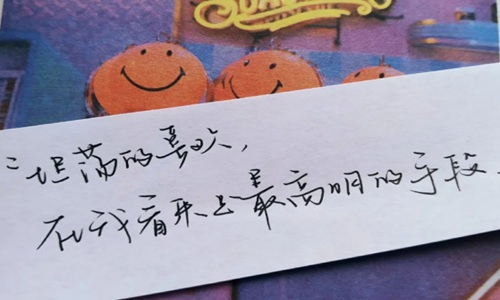 坦荡的喜欢，
在我看来是最高明的手段.